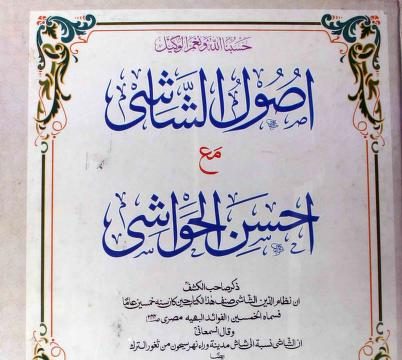 حسبنا الله ونعم الوكيل
اصول الشاشی
مع
احسن الحواشی
ذکر صاحب الکشف
ان نظام الدین الشاشی صنف هذا الکتاب حین کان سنه خمسین عاما
فسماه الخمسین (الفوائد البهیه مصری
وقال السمعانی
ان الشاشی نسبة الی شاش مدینة وراء نهر سیحون من ثغور الترک